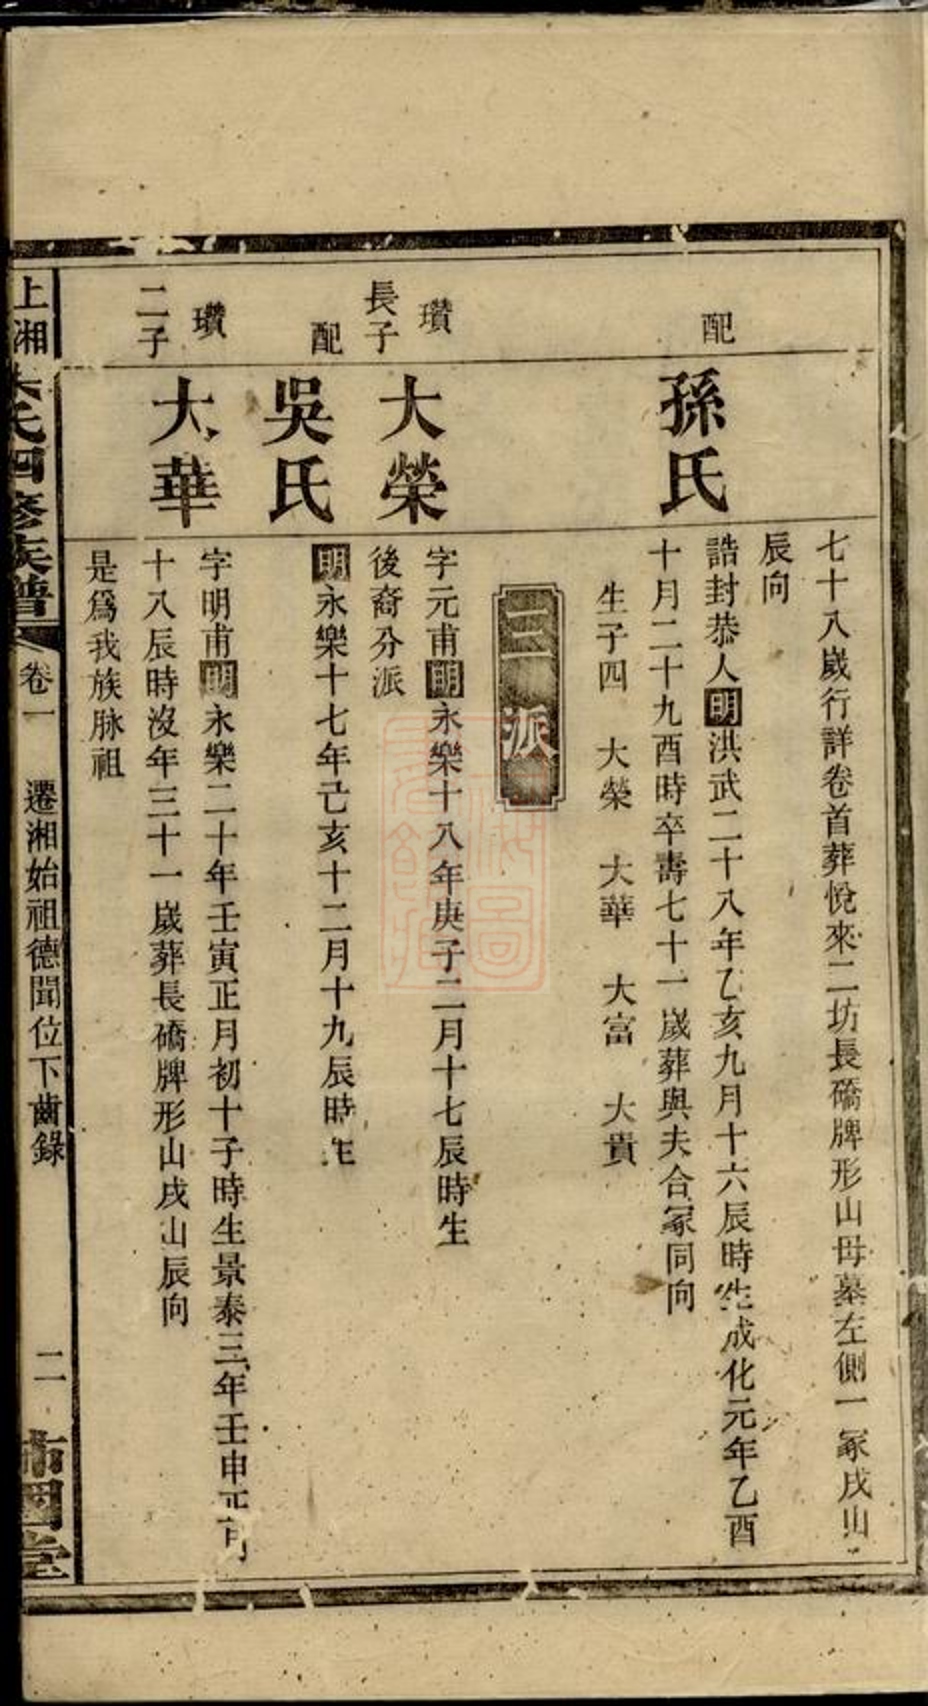 七十八嵗行詳卷首葬悅來二坊長礄牌形山母墓左側一冢戌山
辰向
配
孫氏
誥封恭人明洪武二十八年乙亥九月十六辰時生成化元年乙酉
十月二十九酉時卒壽七十一嵗葬與夫合冢同向
生子四 大榮 大華 大富 大貴
三派
瓚
長子
大榮
字元甫明永樂十八年庚子二月十七辰時生
後裔分派
配
吳氏
明永樂十七年己亥十二月十九辰時生
瓚
二子
大華
字明甫明永樂二十年壬寅正月初十子時生景泰三年壬申正月
十八辰時沒年三十一嵗葬長礄牌形山戌山辰向
是爲我族脉祖
上湘
氏四修族譜
卷一 遷湘始祖德聞位下齒錄 二
堂